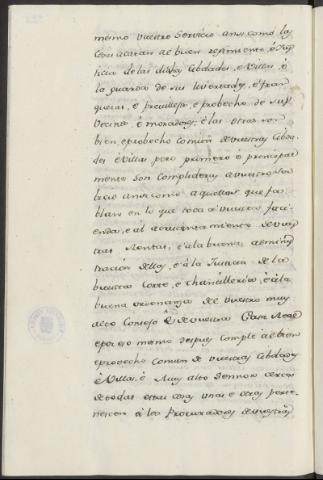 mesmo vuestro servicio ansi como las
que acatan al buen regimiento e Jus
ticia de las dichas Cibdades, e Villas, e
la guarda de sus livertades, e fran
quezas, e previllejos, e probecho de sus
Vecinos e moradores, e las otras non
bien e probecho comun de vuestras Cibda
des e Villas pero primero e principal
mente son complideras a vuestro ser
bicio ansi como aquellas que fa
blan en lo que toca a vuestras faci
endas, e al acrecentamiento de vues
tras Rentas, e a la buena adminis
tracion dellas, e a la Justicia de la
vuestra Corte, e Chancilleria, e a la
buena ordenanza de vuestro muy
alto Consejo e de vuestra Casa Real
e por eso mesmo despues comple al bien
e probecho comun de vuestras Cibdades
e Villas, e Muy alto Sennor cerca
de todas estas cosas unas e otras perte
nescen a los Procuradores de vuestras